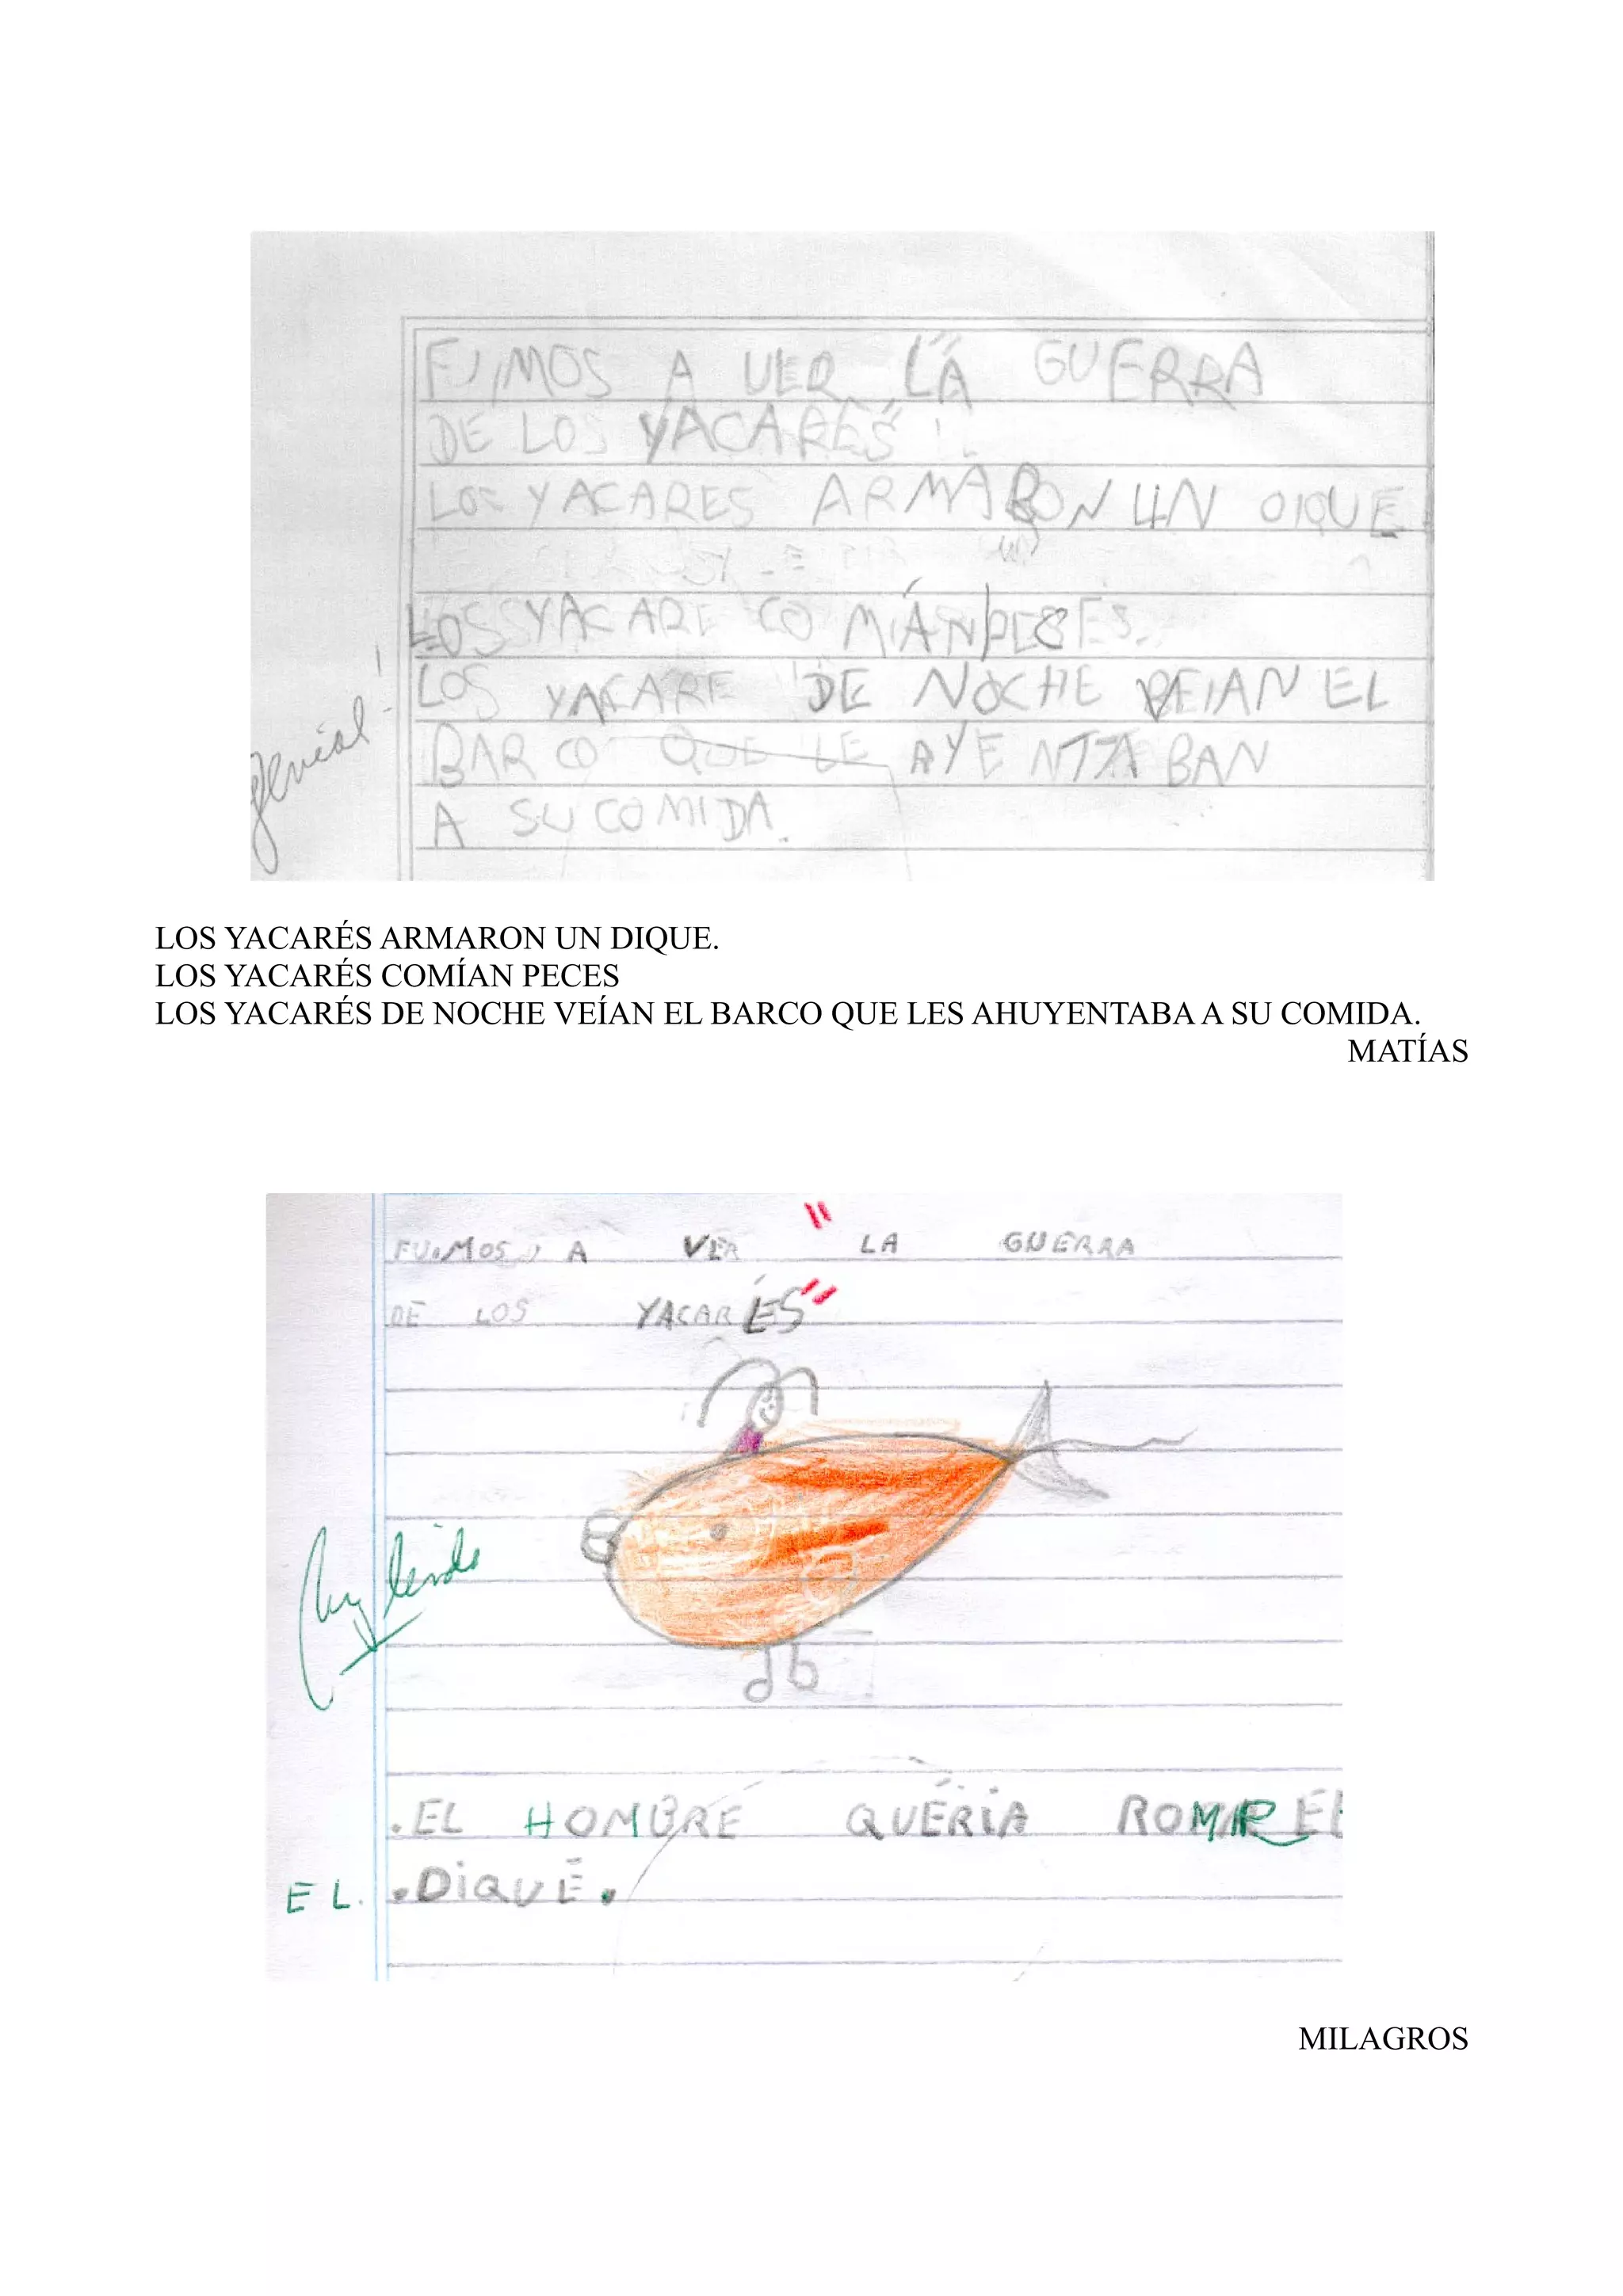 FUIMOS A VER "LA GUERRA
DE LOS YACARÉS".
LOS YACARES ARMARON UN DIQUE.
LOS YACARE COMÍAN PESES.
LOS YACARE DE NOCHE VEIAN EL
genial!
BARCO QUE LE AYENTABAN
A SU COMIDA.
LOS YACARÉS ARMARON UN DIQUE.
LOS YACARÉS COMÍAN PECES
LOS YACARÉS DE NOCHE VEÍAN EL BARCO QUE LES AHUYENTABA A SU COMIDA.
MATÍAS
FUIMOS A VER "LA GUERRA
DE LOS YACARÉS"
Muy lindo
.EL HOMBRE QUERIA ROMPER EL
EL .DIQUE.
MILAGROS